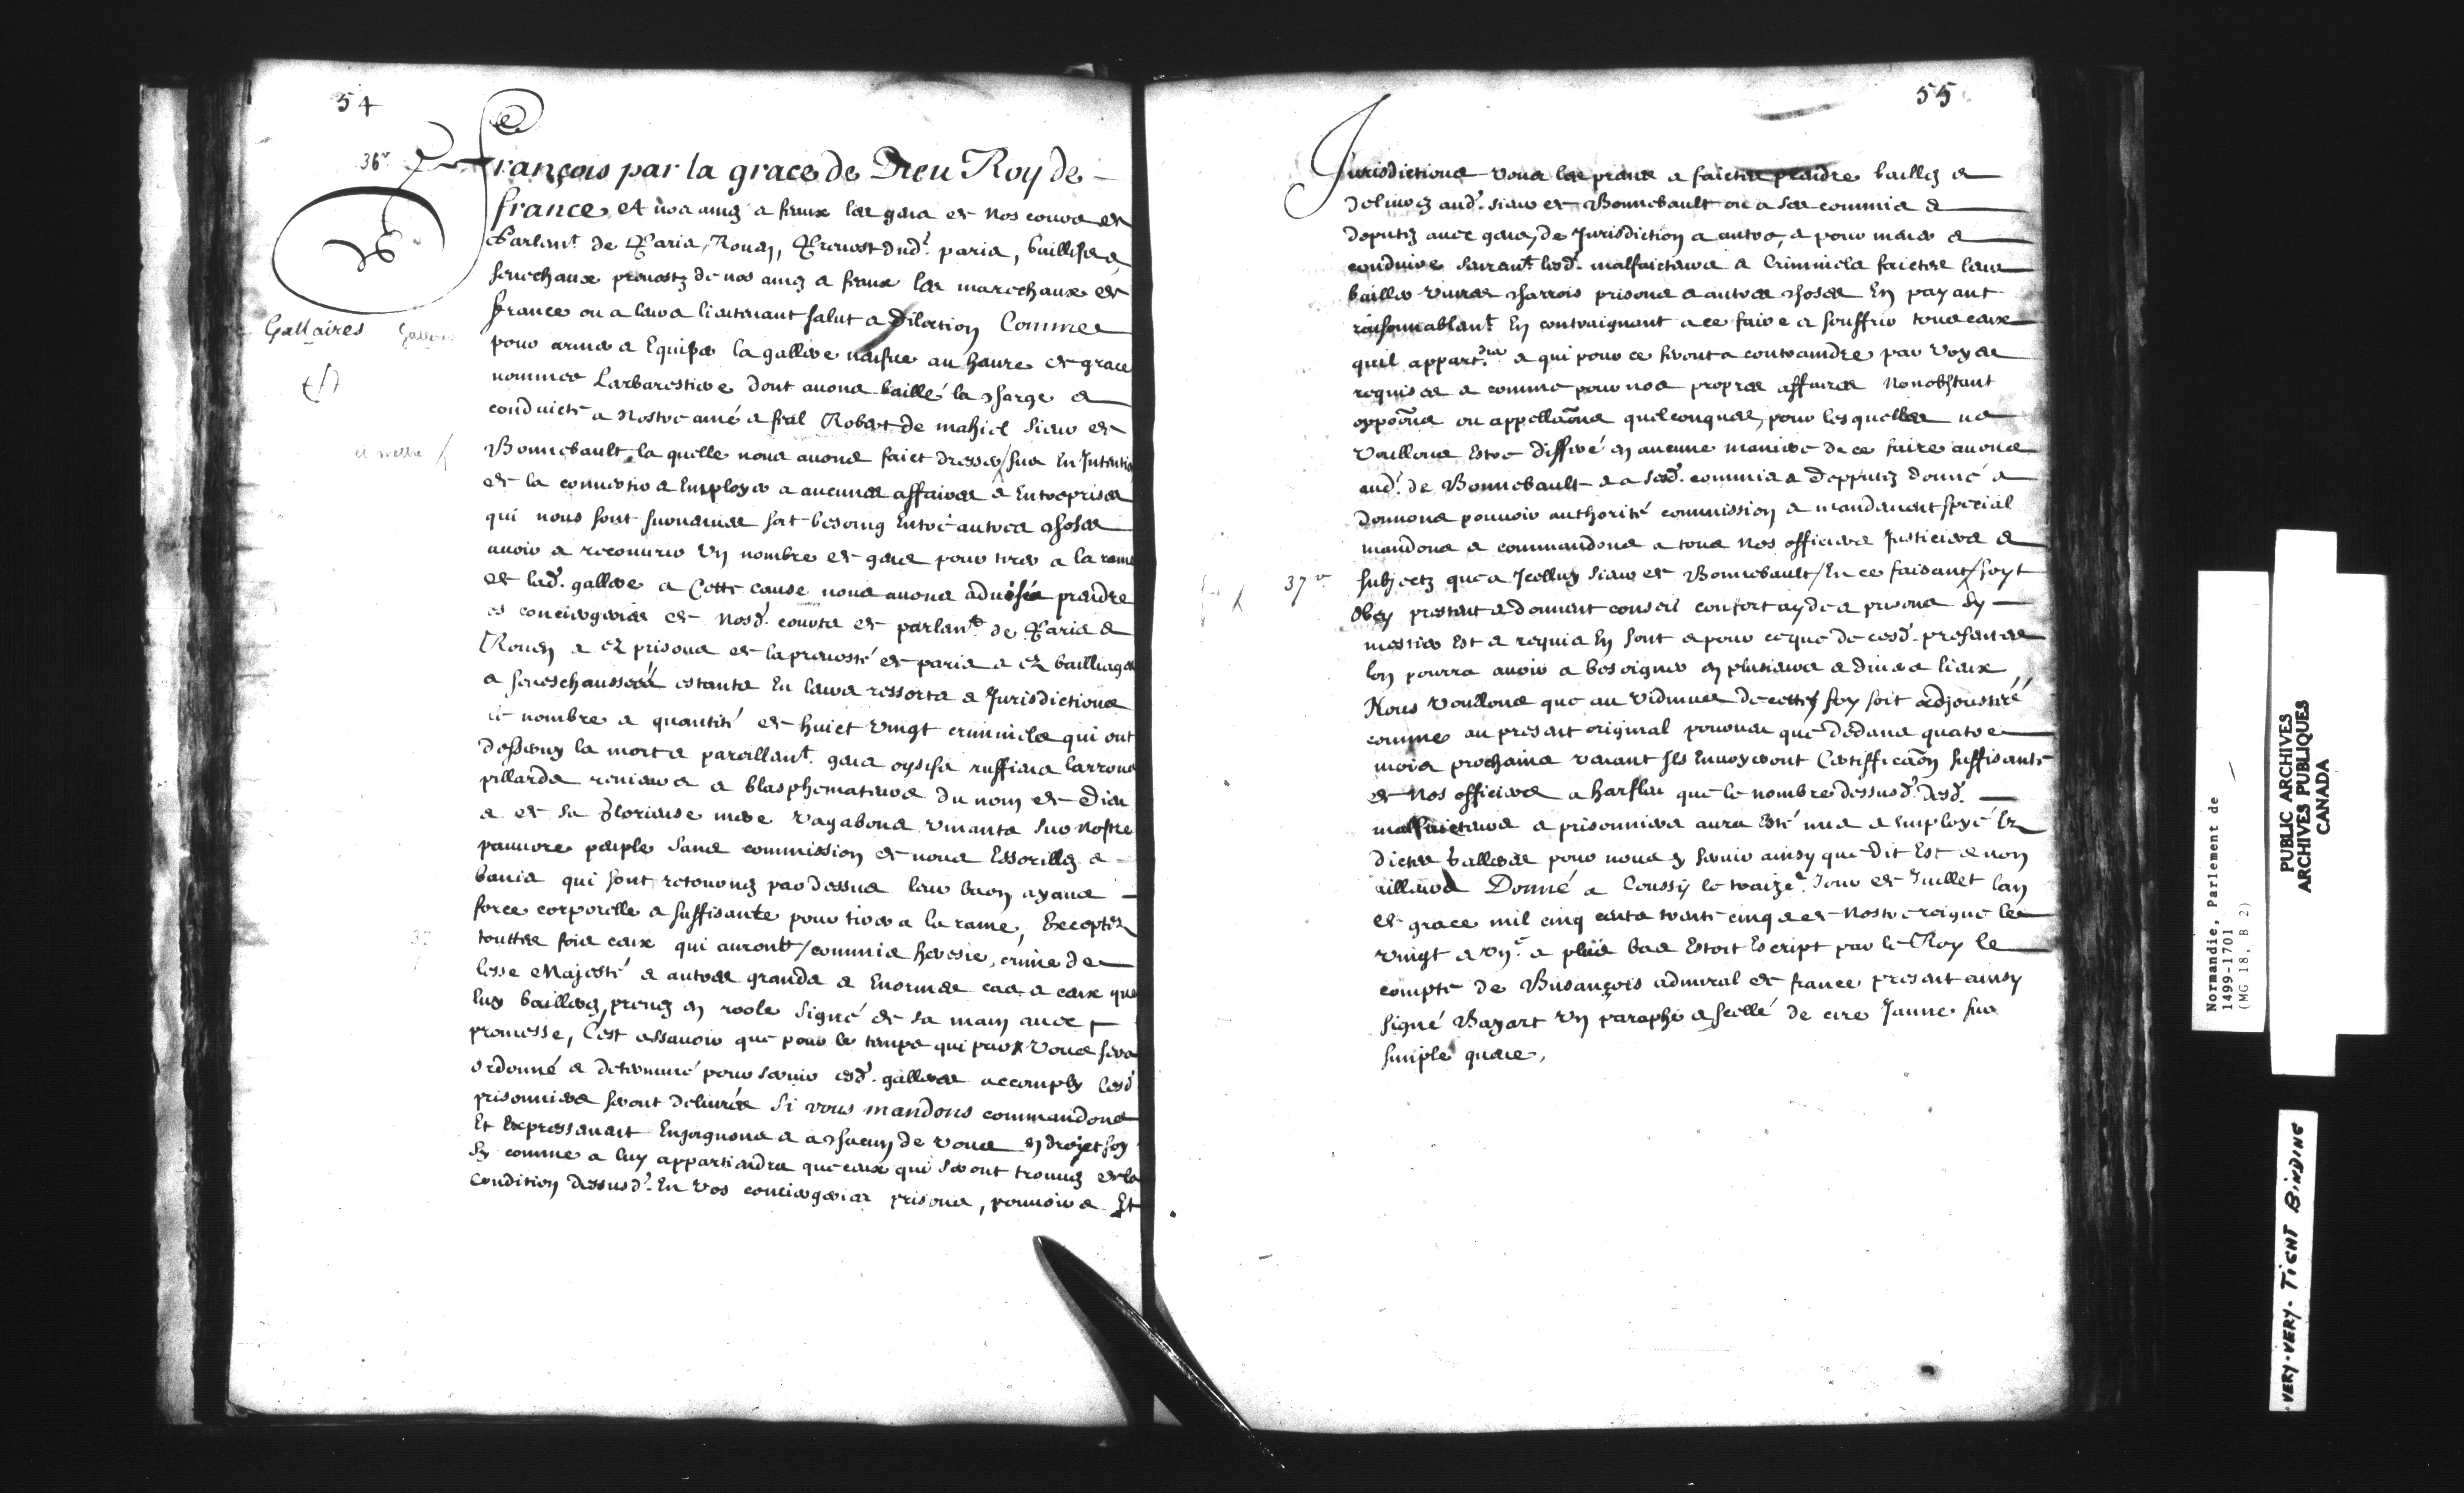 54
36 v
François par la grace de Dieu Roy de
france, et nos amez a feaux les gens de nos cours de
Parlem.t de Paris, Rouen, Prevost dud.t paris, baillifs a
senechaux prevostz de nos amez a feaux les marechaux de
france ou a leurs lieutenant salut a dilection Comme
pour armer a Equiper la gallere naifue au haure de grace
nommee Larbarestiere dont auons baillé la charge a
conduicte a Nostre amé a feal Robert de mahiel sieur de
Bonnebault, la quelle nous auons faict dresser / sur En Intention
de la conuertir a Employer a aucunes affaires a Entreprises
qui nous sont suruenues soit besoing Entre autres choses
auoir a recouurir un nombre de gens pour tirer a la rame
de lad. gallere a Cette cause nous auons aduisé prendre
es conciergeries de Nosd. cours de parlem.t de Paris a
Rouen a ez prisons de la preuosté de paris a ez bailliages
a seneschaussées estants En leurs ressorts a Jurisdictions
le nombre a quantité de huict vingt criminels qui ont
desseruy la mort a pareillem.t gens oysifs ruffiens larrons
pillards renieurs a blasphemateurs du nom de Dieu
a de sa glorieuse mere vagabons viuants sur nostre
pauure peuple sans commission de nous Essorillez a
banis qui sont retournez par dessus leur ban ayans
force corporelle a suffisante pour tirer a la rame, Exceptez
touttes fois ceux qui auront / commis heresie, crime de
lesse Majesté a autres grands a Enormes cas a ceux que
luy baillerez, prenez en roole signé de sa main auec
promesse, C'est assauoir que pour le temps qui par vous sera
ordonné a determiné pour seruir esd. galleres accomply lesd
prisonniers seront deliurés Si vous mandons commandons
Et Expressement Enjoignons a a chacun de vous en droict soy
sy comme a luy appartiendra que ceux qui seront trouuez de la
condition dessusd. En vos conciergeries prisons, pouuoirs Et
Gallaires
et mettre /
55
Jurisdictions vous les prenez a faictes prendre baillez a
deliurez aud. sieur de Bonnebault ou a ses commis a
deputez auec gens, de Jurisdiction a autre, a pour mener a
conduire seurem.t lesd. malfaicteurs a Criminels faictes leur
bailler viures charrois prisons a autres choses En payant
raisonnablem.t En contraignant a ce faire a souffrir tous ceux
quil appart.dra a qui pour ce feront a contraindre par voyes
requises a comme pour nos propres affaires Nonobstant
oppoõns ou appellaõns quelconques, pour lesquelles ne
voullons Estre differé en aucune maniere de ce faire auons
aud. de Bonnebault a a sesd. commis a depputez donné a
donnons pouuoir authorité commission a mandement special
mandons a commandons a tous Nos officiers Justiciers a
37 v
subjectz que a Jcelluy sieur de Bonnebault / En ce faisant / soyt
obey prestent a donnent conseil confort ayde a prisons sy
mestier Est a requis En sont a pour ce que de cesd. presentes
lon pourra auoir a besoigner en plusieurs a diuers lieux
Nous Voullons que au vidimus de cettes foy soit adjoustée
comme au present original pourueu que dedans quatre
mois prochains venant Ils Enuoyeront Certifficaõn suffisante
de Nos officiers a harfleu que le nombre dessusd. desd.
malfaicteurs a prisonniers aura Esté mis a Employé Ez
dictes galleres pour nous y seruir ainsy que dit Est a non
ailleurs Donné a Coussy le traize.e Jour de Juillet lan
de grace mil cinq cents trente cinq a de Nostre reigne le
vingt a un.e a plus bas Estoit Escript par le Roy le
compte de Busançois admiral de france present ainsy
signé Bayart un paraphe a scellé de cire Jaune sur
simple queue,
Normandie, Parlement de
1499-1701
(MG 18, B 2)
PUBLIC ARCHIVES
ARCHIVES PUBLIQUES
CANADA
VERY-VERY-TIGHT BINDING